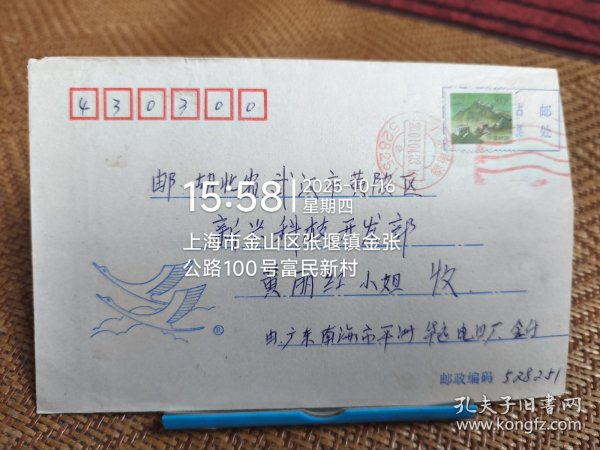 430300
邮 湖北省武汉市黄陂区
15:58
2025-10-16
星期四
新兴科技开发部
上海市金山区张堰镇金张
公路100号富民新村
黄丽红小姐 收
由广东南海市平洲 电四厂
邮政编码 528251
邮
处
孔夫子旧书网
www.kongfz.com